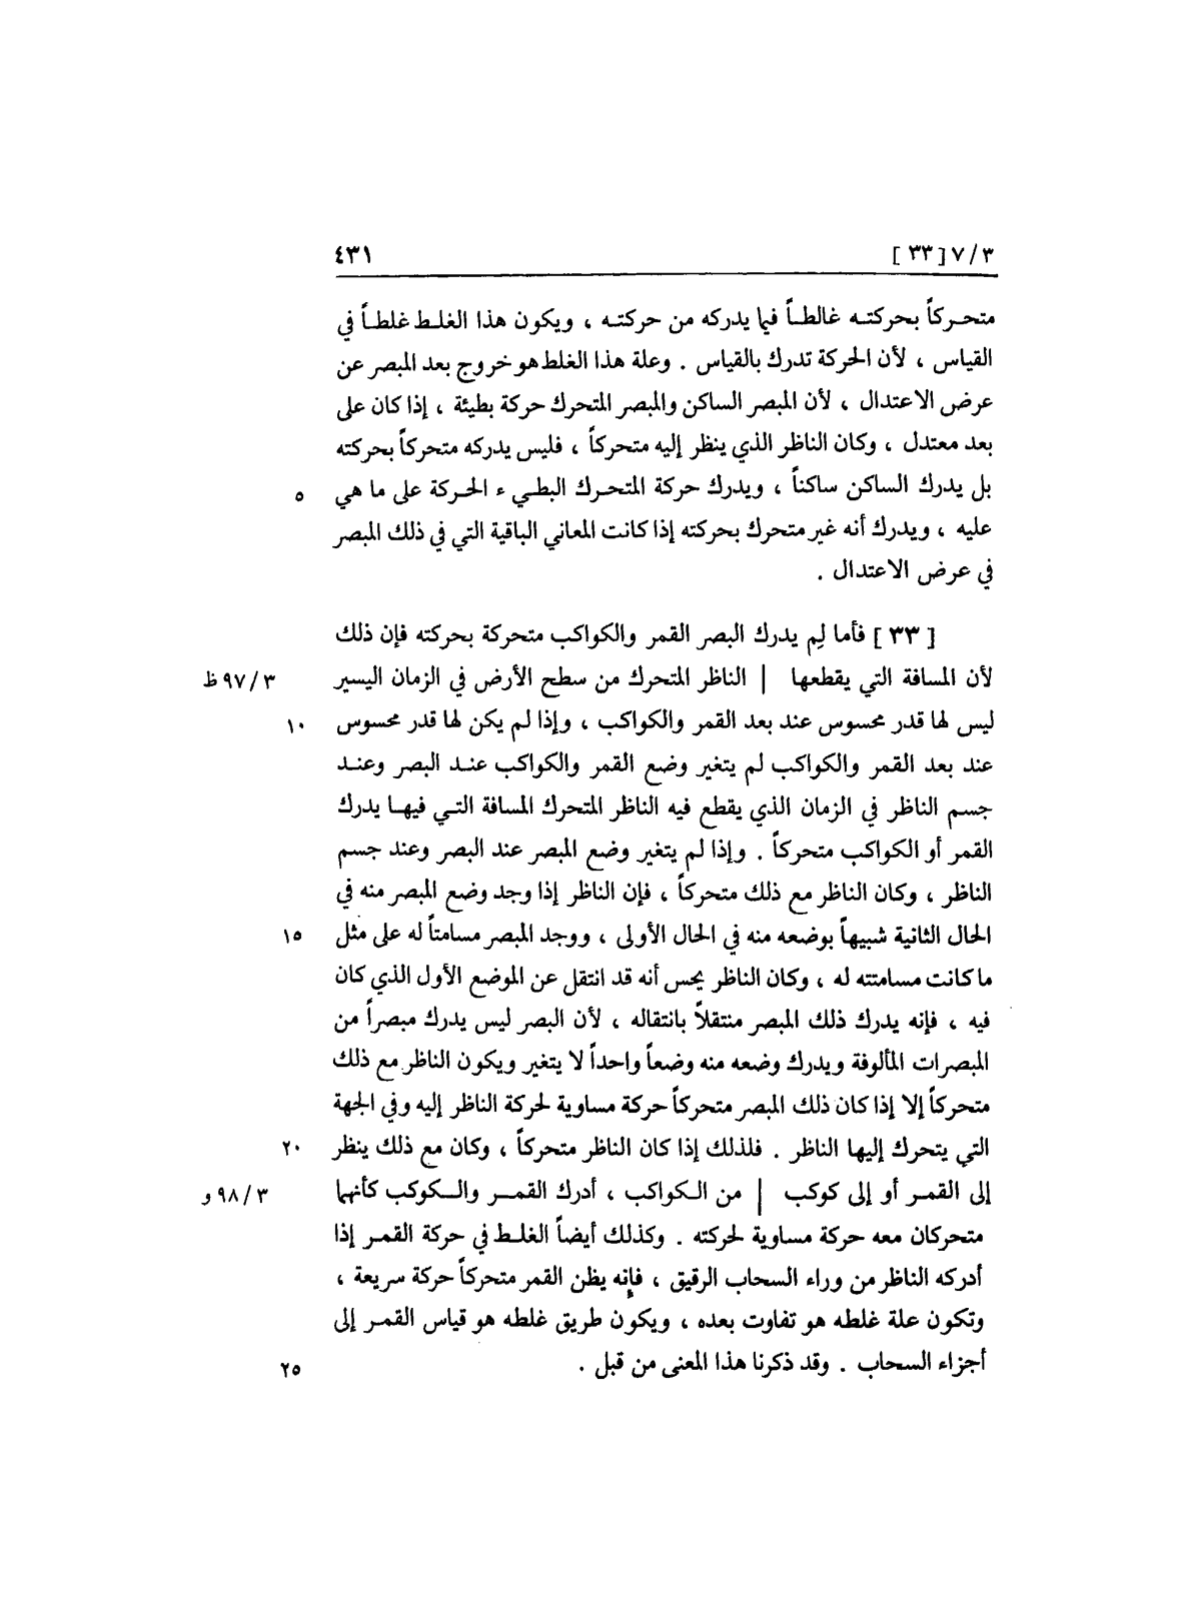 ٣ / ٧ [ ٣٣ ] ٤٣١
متحـركاً بحركتـه غالطـاً فيما يدركه من حركتـه ، ويكون هذا الغلـط غلطـاً في
القياس ، لأن الحركة تدرك بالقياس . وعلة هذا الغلط هو خروج بعد المبصر عن
عرض الاعتدال ، لأن المبصر الساكن والمبصر المتحرك حركة بطيئة ، إذا كان على
بعد معتدل ، وكان الناظر الذي ينظر إليه متحركاً ، فليس يدركه متحركاً بحركته
بل يدرك الساكن ساكناً ، ويدرك حركة المتحـرك البطـيء الحـركة على ما هي ٥
عليه ، ويدرك أنه غير متحرك بحركته إذا كانت المعاني الباقية التي في ذلك المبصر
في عرض الاعتدال .
[ ٣٣ ] فأما لِم يدرك البصر القمر والكواكب متحركة بحركته فإن ذلك
لأن المسافة التي يقطعها | الناظر المتحرك من سطح الأرض في الزمان اليسير ٣ / ٩٧ ظ
ليس لها قدر محسوس عند بعد القمر والكواكب ، وإذا لم يكن لها قدر محسوس ١٠
عند بعد القمر والكواكب لم يتغير وضع القمر والكواكب عنـد البصر وعنـد
جسم الناظر في الزمان الذي يقطع فيه الناظر المتحرك المسافة التـي فيهـا يدرك
القمر أو الكواكب متحركاً . وإذا لم يتغير وضع المبصر عند البصر وعند جسم
الناظر ، وكان الناظر مع ذلك متحركاً ، فإن الناظر إذا وجد وضع المبصر منه في
الحال الثانية شبيهاً بوضعه منه في الحال الأولى ، ووجد المبصر مسامتاً له على مثل ١٥
ما كانت مسامتته له ، وكان الناظر يحس أنه قد انتقل عن الموضع الأول الذي كان
فيه ، فإنه يدرك ذلك المبصر منتقلاً بانتقاله ، لأن البصر ليس يدرك مبصراً من
المبصرات المألوفة ويدرك وضعه منه وضعاً واحداً لا يتغير ويكون الناظر مع ذلك
متحركاً إلا إذا كان ذلك المبصر متحركاً حركة مساوية لحركة الناظر إليه وفي الجهة
التي يتحرك إليها الناظر . فلذلك إذا كان الناظر متحركاً ، وكان مع ذلك ينظر ٢٠
إلى القمـر أو إلى كوكب | من الـكواكب ، أدرك القمـر والـكوكب كأنهما ٣ / ٩٨ و
متحركان معه حركة مساوية لحركته . وكذلك أيضاً الغلـط في حركة القمـر إذا
أدركه الناظر من وراء السحاب الرقيق ، فإنه يظن القمر متحركاً حركة سريعة ،
وتكون علة غلطه هو تفاوت بعده ، ويكون طريق غلطه هو قياس القمـر إلى
أجزاء السحاب . وقد ذكرنا هذا المعنى من قبل . ٢٥